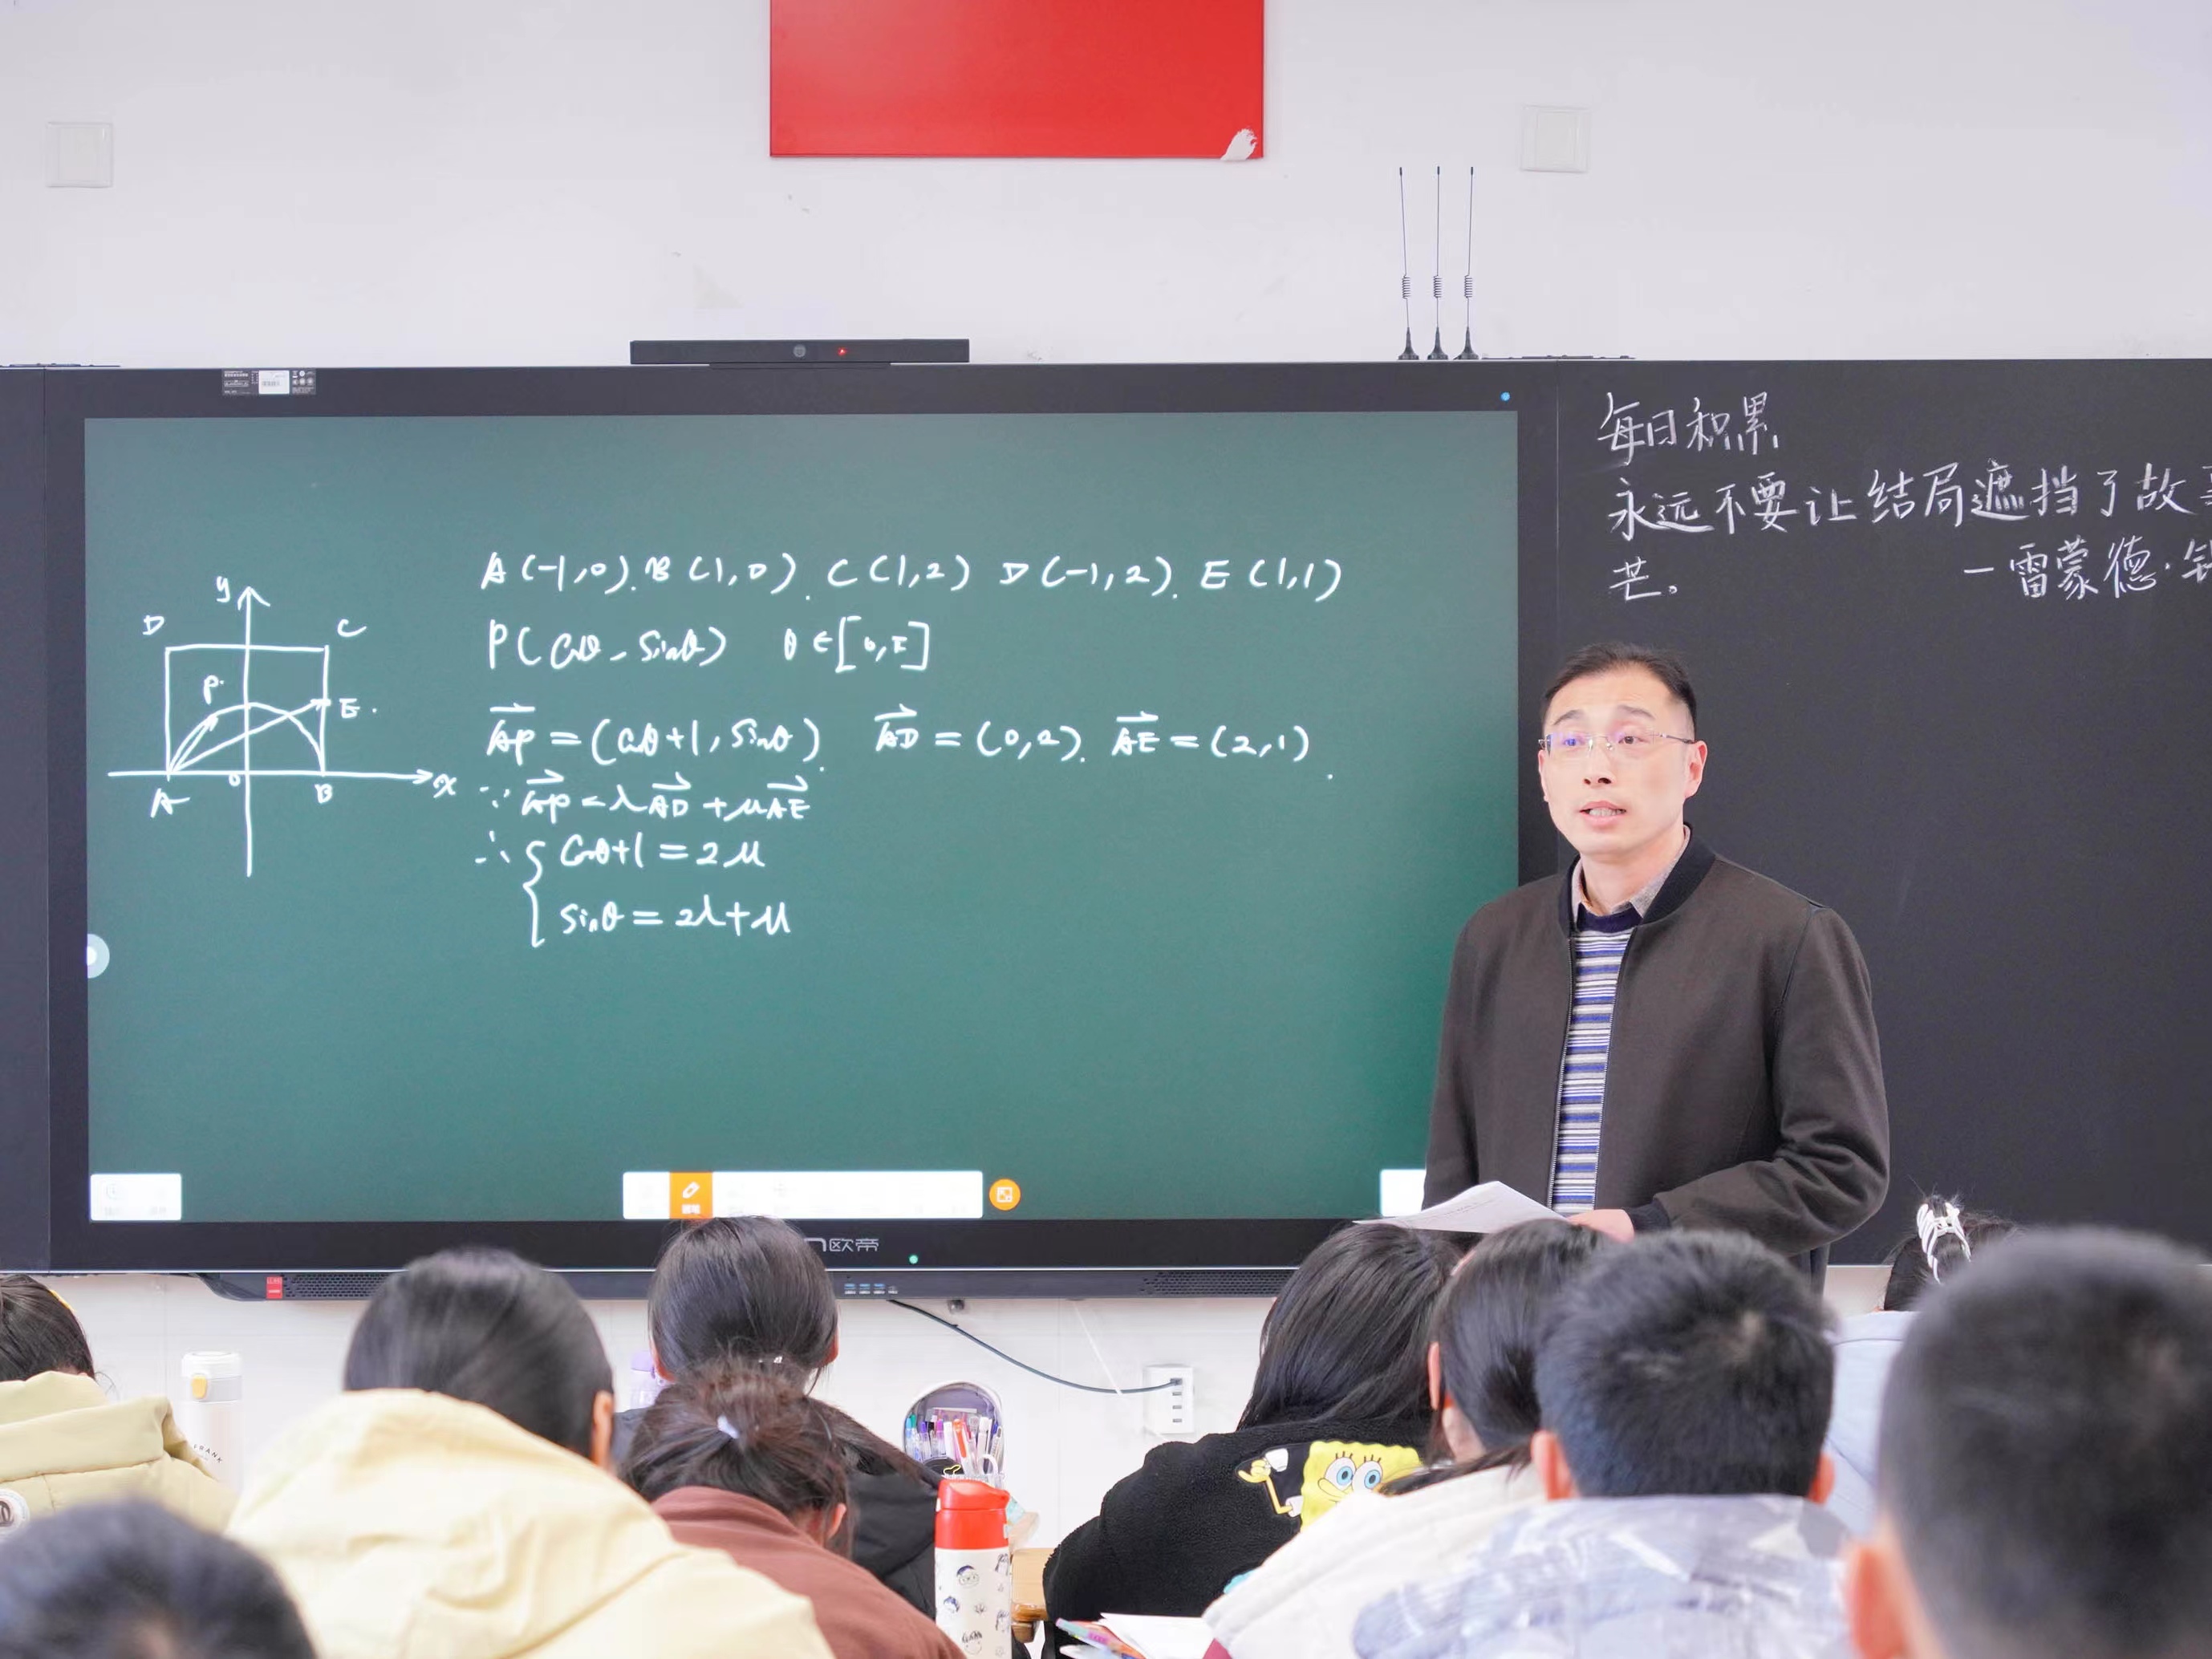 A(-1,0). B(1,0). C(1,2) D(-1,2). E(1,1)
P(cosθ, sinθ) θ∈[0,π]
y
D C
P
E.
A O B x
AP→=(cosθ+1, sinθ). AD→=(0,2). AE→=(2,1).
∵ AP→=λAD→+μAE→
∴ { cosθ+1=2μ
sinθ=2λ+μ
每日积累
永远不要让结局遮挡了故
芒。 —雷蒙德·
欧帝